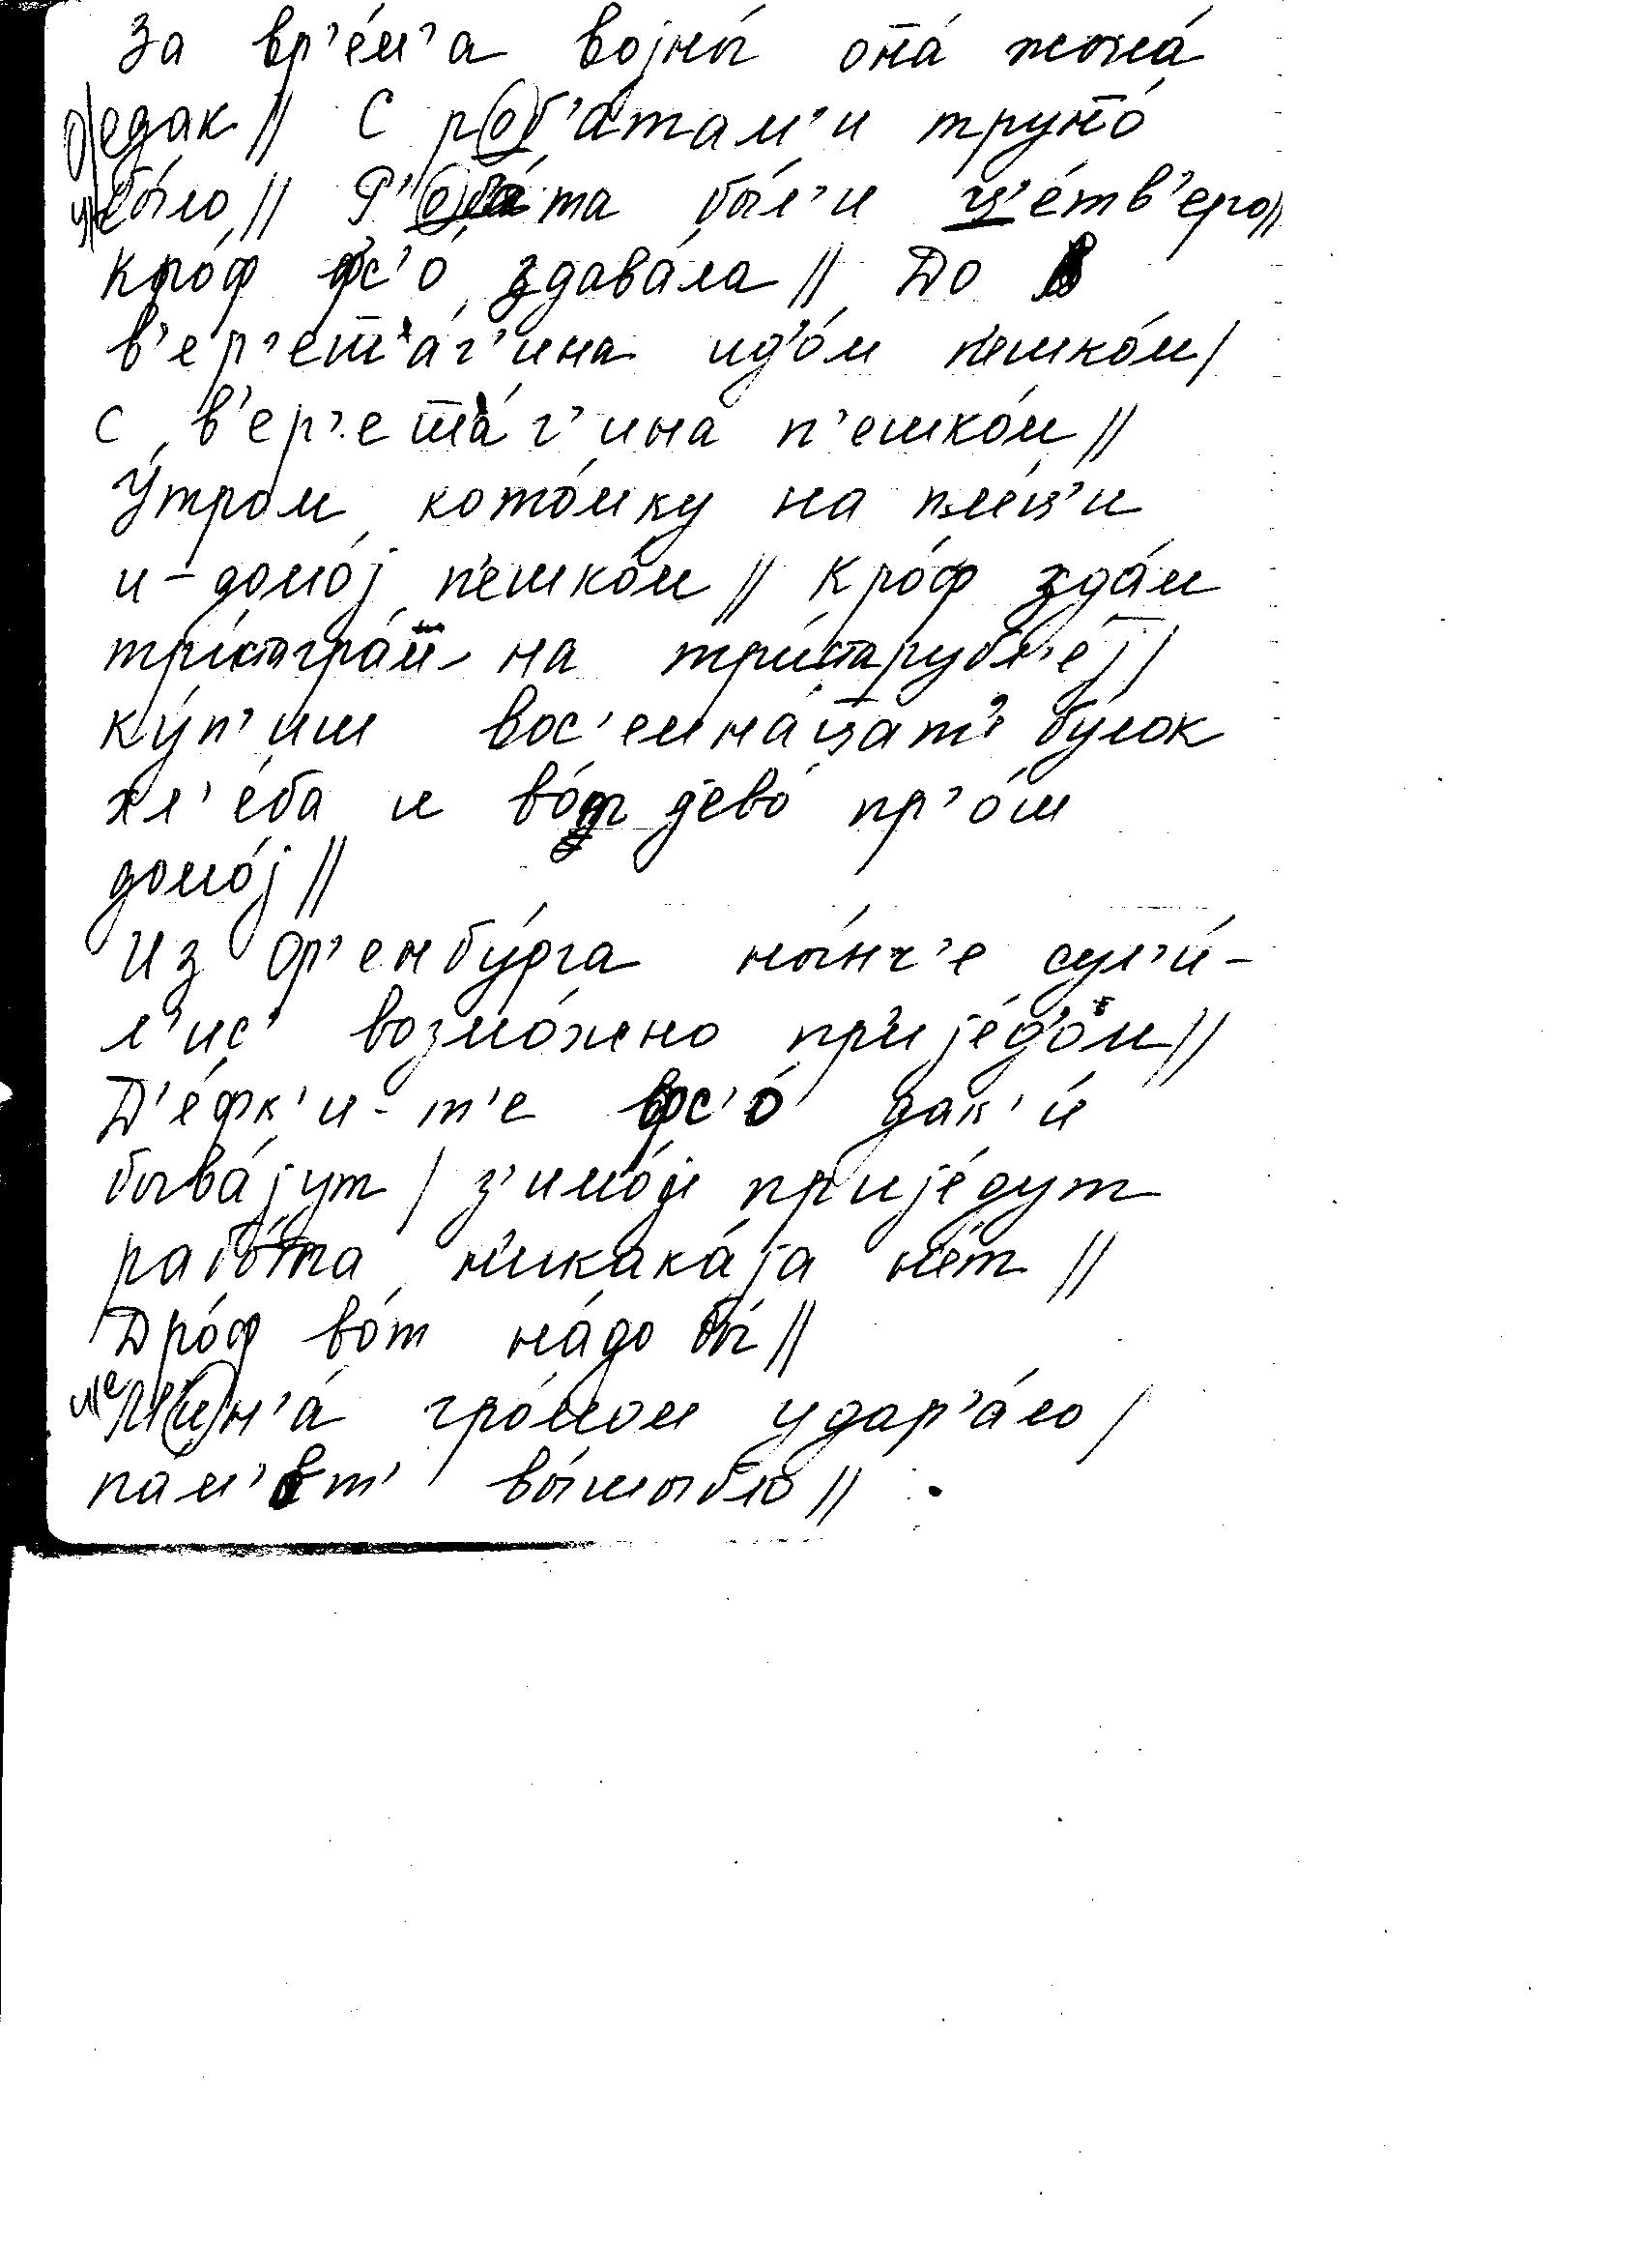 За вр’е́м’а војны́ она́ жыла́
едак // С роб’а́там’и труно́
бы́ло // Р’еб’а́та бы́л’и ц’е́тв’еро //
Кро́ф фс’о́ здава́ла // До
в’ер’ешт’а́г’ина ид’о́м п’ешко́м /
с в’ер’ешта́г’ина п’ешко́м //
У́тром кото́мку на пл’е́ц’и
и – домо́ј п’ешко́м // Кро́ф зда́м
три́стагра́м на три́старубл’е́ј /
ку́п’иш вос’емна́цат’ бу́лок
хл’е́ба и во́т јево́ пр’о́ш
домо́ј //
Из Ор’енбу́рга ны́нч’е сул’и́-
л’ис’ возмо́жно при је́д’ом //
Д’е́фк’и-т’е фс’о́ дак’и́
быва́јут / з’имо́ј прије́дут
рабо́та н’икака́ја н’е́т //
Дро́ф во́т на́до бы́ //
М’ин’а́ гро́мом удар’а́ло /
па́м’ет’ вы́шыбло //